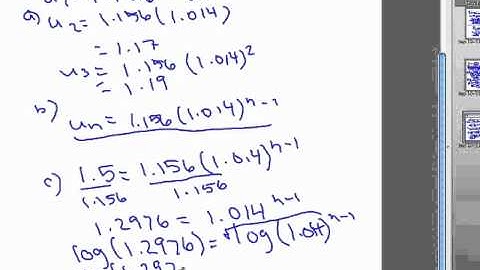 a) u₂ = 1.156(1.014)
= 1.17
u₃ = 1.156(1.014)²
= 1.19
b) uₙ = 1.156(1.014)ⁿ⁻¹
c) 1.5 = 1.156(1.014)ⁿ⁻¹
1.156 1.156
1.2976 = 1.014ⁿ⁻¹
log(1.2976) = log(1.014)ⁿ⁻¹